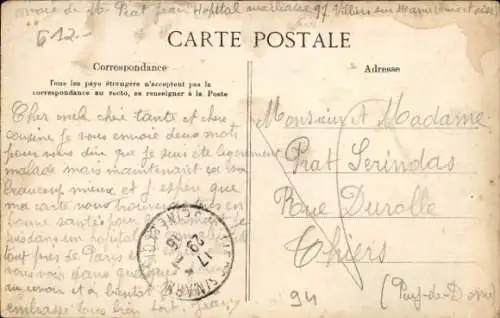 envoie de Mr Prat Jean Hopital auxiliaire 97 Villiers sur Marne (Seine et Oise)
612-
CARTE POSTALE
Correspondance
Adresse
Tous les pays étrangers n'acceptent pas la
correspondance au recto, se renseigner à la Poste
Cher oncle chère tante et cher
cousine je vous envoie deux mots
pour vous dire que je suis été legerement
malade mais maintenant
beaucoup mieux et j espere que
ma carte vous trouvera
bonne santé pour le moment je
suis dans un hopital
tout pres de Paris
vous voir dans quelques
au revoir et a bientot
embrasse tous bien fort Jean
Monsieur et Madame
Prat Serindas
Rue Durolle
Thiers
(Puy-de-Dome)
94
17
29